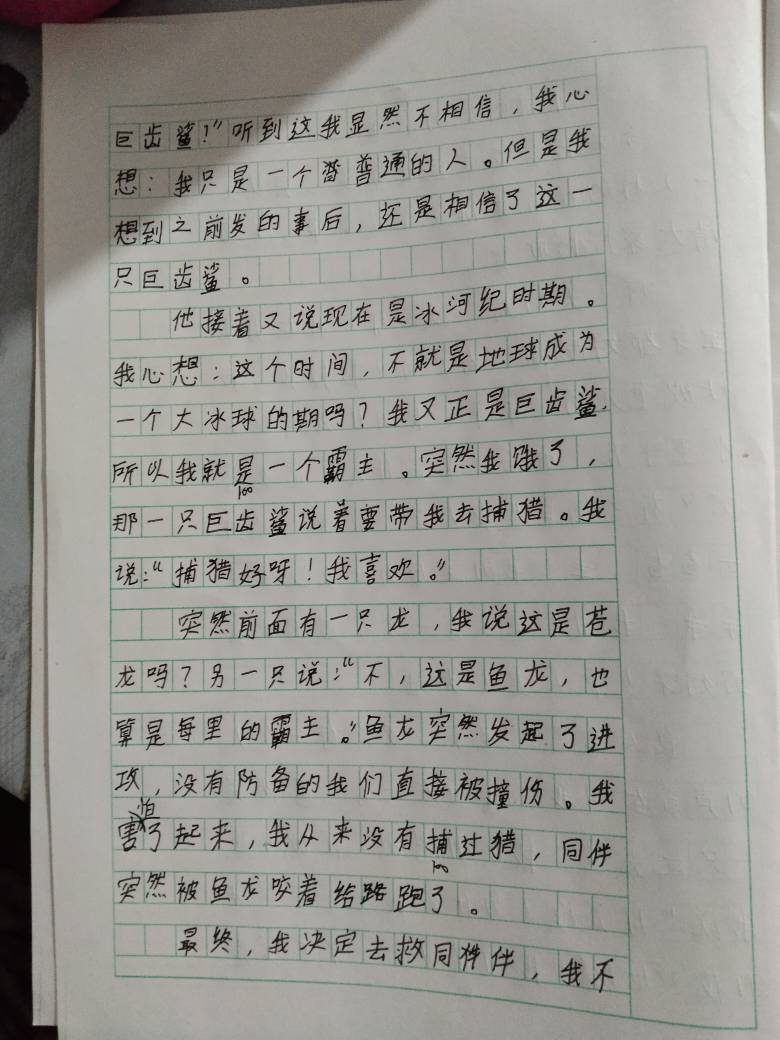 巨齿鲨!”听到这我显然不相信，我心
想：我只是一个普普通的人。但是我
想到之前发的事后，还是相信了这一
只巨齿鲨。
他接着又说现在是冰河纪时期。
我心想：这个时间，不就是地球成为
一个大冰球的期吗？我又正是巨齿鲨.
所以我就是一个霸主。突然我饿了，
100
那一只巨齿鲨说着要带我去捕猎。我
说:“捕猎好呀！我喜欢。”
突然前面有一只龙，我说这是苍
龙吗？另一只说:“不，这是鱼龙，也
算是每里的霸主。”鱼龙突然发起了进
攻，没有防备的我们直接被撞伤。我
害怕了起来，我从来没有捕过猎，同伴
200
突然被鱼龙咬着给跑了。
最终，我决定去救同伴，我不